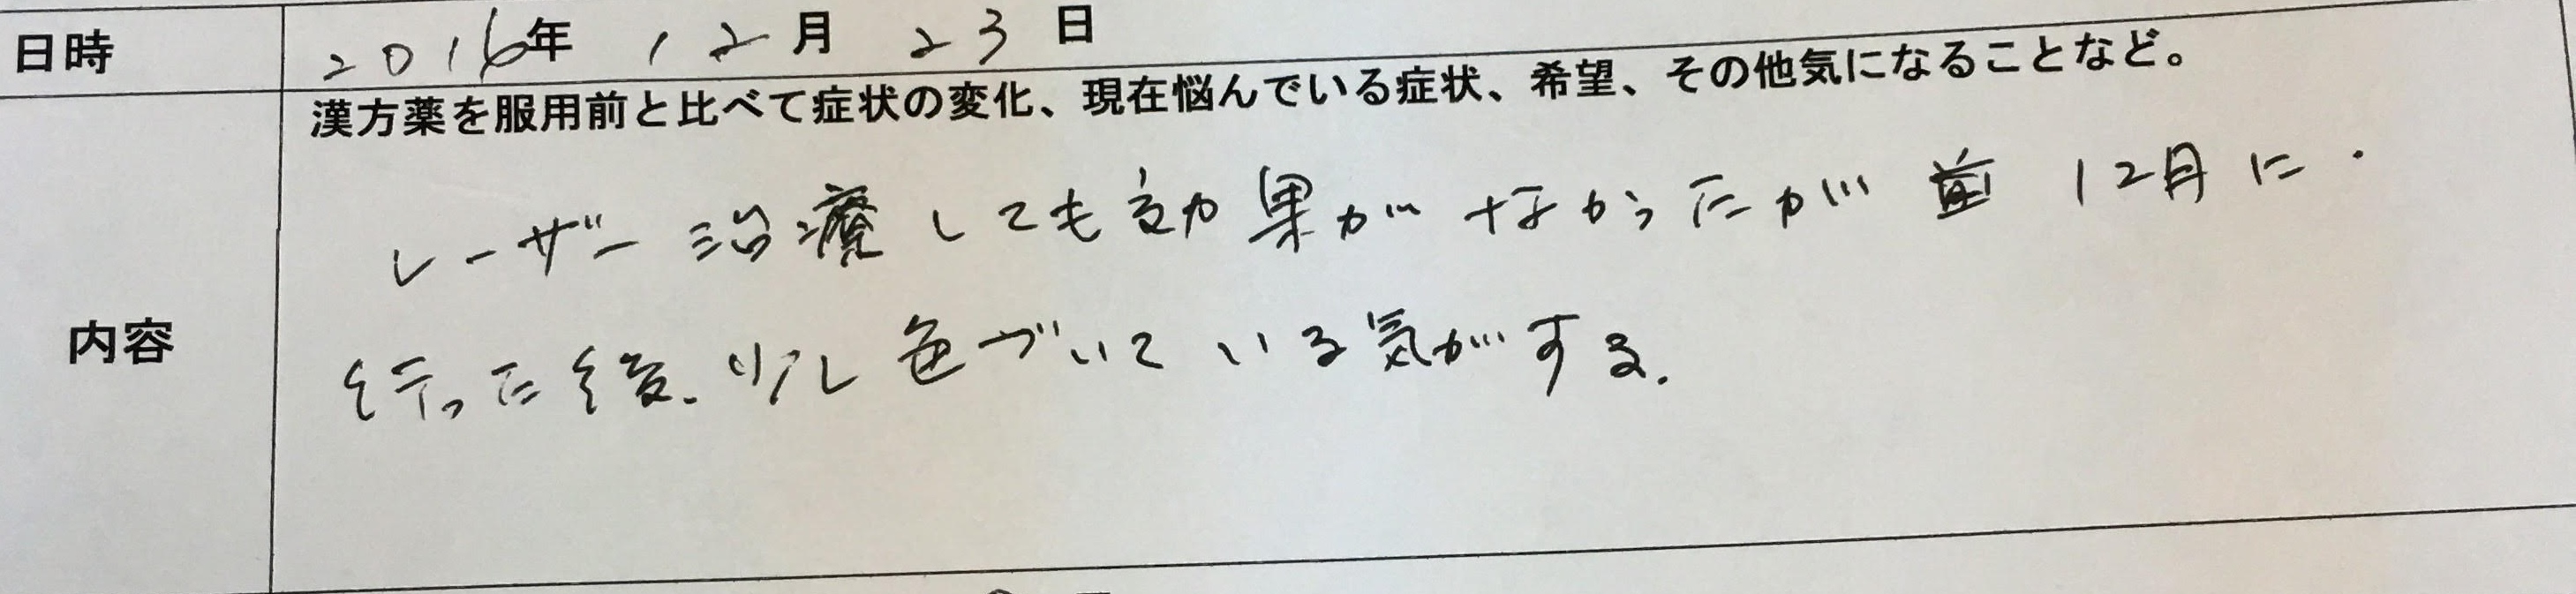 日時 2016年 12月 23日
漢方薬を服用前と比べて症状の変化、現在悩んでいる症状、希望、その他気になることなど。
内容
レーザー治療しても効果がなかったが前 12月に
行った後、少し色づいている気がする.